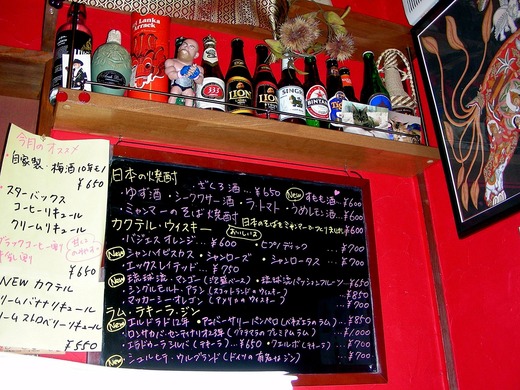 Sri Lanka
Arrack
333
LION
LION
SINGHA
BINTANG
今月のオススメ
自家製 梅酒10年モノ
¥650
スターバックス
コーヒーリキュール
クリームリキュール
ブラックコーヒー割り
¥650
NEW カクテル
クリームバナナリキュール
クリームストロベリーリキュール
¥550
日本の焼酎
・ざくろ酒…¥650 New すもも酒…¥600
・ゆず酒・シークワサー酒・ラ・トマト・うめレモン酒…¥600
・ミャンマーのそば焼酎 おいしいよ 日本のそばをミャンマーでつくりました ¥600
カクテル・ウィスキー
・パジェス オレンジ…¥600 ・ピゾンディック ¥700
New シャンハイビスカス・シャンローズ ・シャンロータス …¥700
・エックスレイテッド …¥750
New 琉球流・マンゴー(泡盛ベース)・琉球流パッションフルーツ ¥650
・シングルモルト・アラン(スコットランドのウィスキー) …¥850
・マッカーシーオレゴン(アメリカのウィスキー) ¥700
ラム・ラキーラ・ジン
New エルドラド12年 ・アニバーサリーパンペロ(ベネズエラのラム) …¥850
・ロンサカパ・センテナリオ23年(グァテマラのプレミアムラム) …1,000
・エラドゥーラ シルバ(テキーラ) …¥650 ・クエルボ(テキーラ) ¥700
New シュルヒテ・ウルブランド(ドイツの有名なジン) ¥700